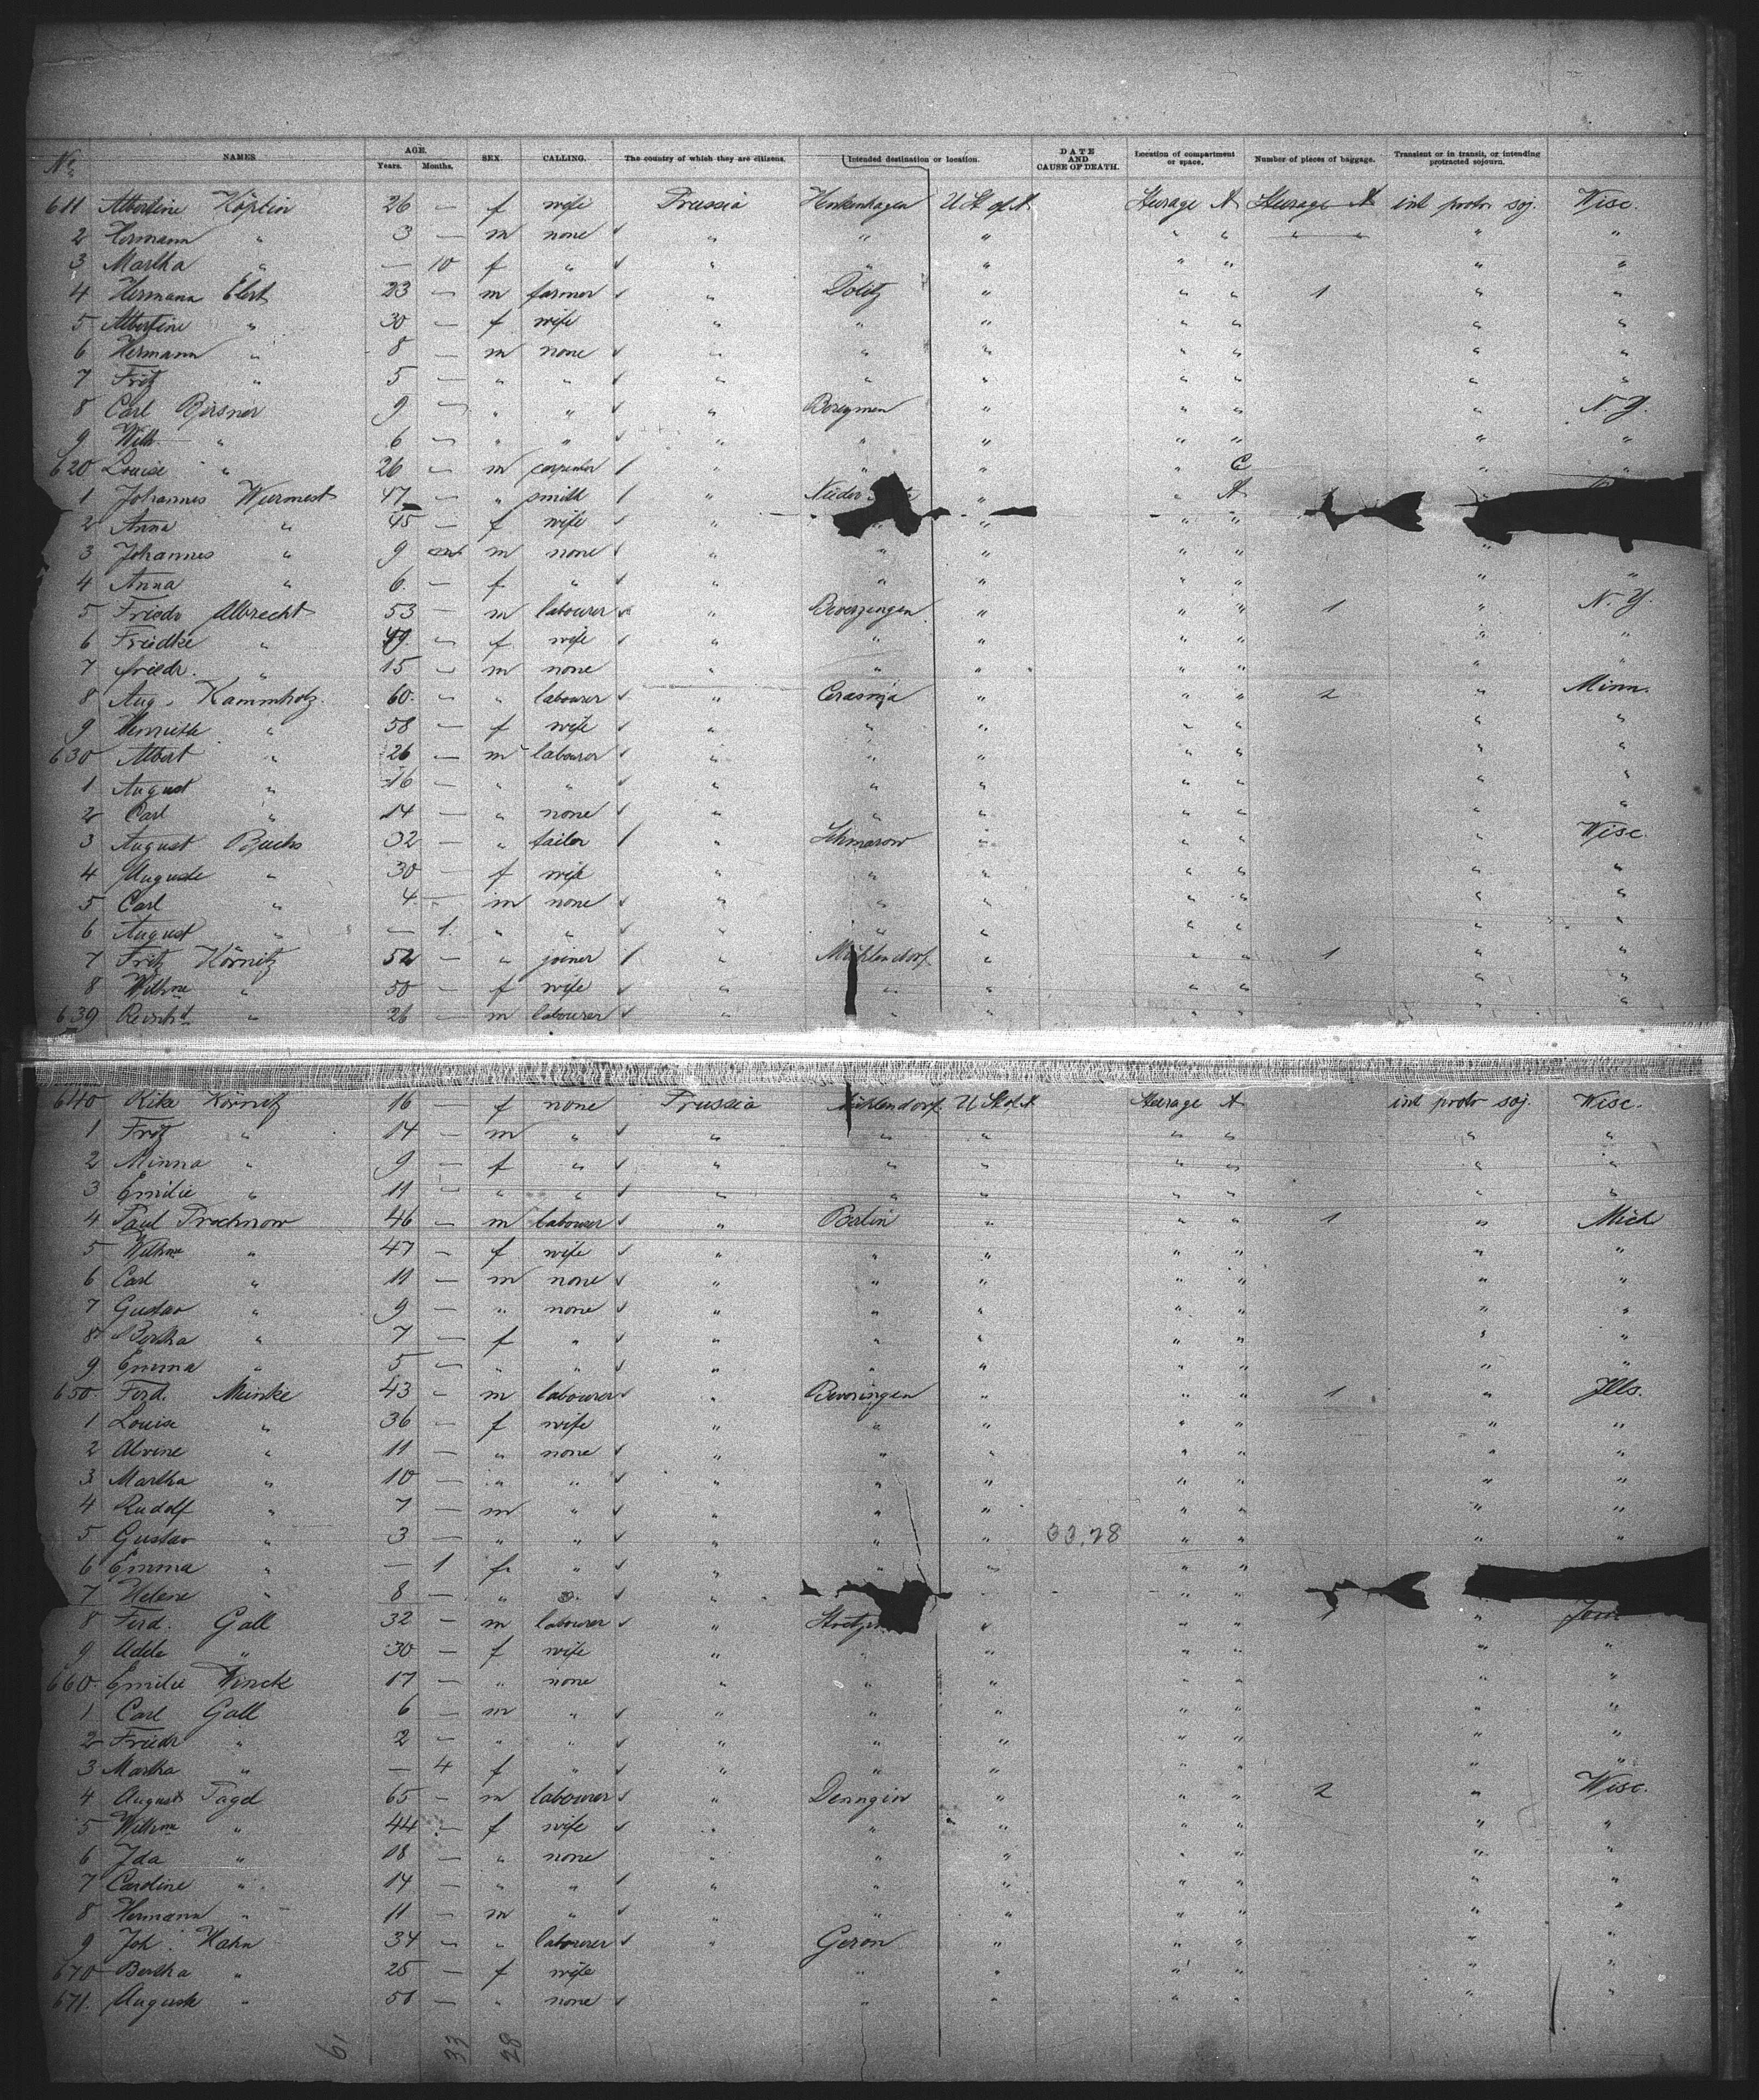 No. NAMES AGE. Years. Months. SEX. CALLING. The country of which they are citizens. Intended destination or location. DATE AND CAUSE OF DEATH. Location of compartment or space. Number of pieces of baggage. Transient or in transit, or intending protracted sojourn.
611 Albertine Köplin 26 — f wife Prussia Henkenhagen U St of A Steerage A Steerage A int protr soj. Wisc.
2 Hermann " 3 — m none " " " " " " " " "
3 Martha " — 10 f " " " " " " " "
4 Hermann Elert 23 — m farmer " Dölitz " " " 1 " "
5 Albertine " 30 — f wife " " " " " " "
6 Hermann " 8 — m none " " " " " " "
7 Fritz " 5 — " " " " " " " " "
8 Carl 9 — " " " " " " " N. Y.
9 Wilh " 6 — " " " " " " " " "
620 Louise " 26 — m carpenter " " " " C " "
1 Johannes Wurmest 47 — " smith " Nieder " " A "
2 Anna " 45 — f wife " " " " "
3 Johannes " 9 m none " " " " " "
4 Anna " 6 — f " " " " " " " "
5 Friedr Albrecht 53 — m labourer " " " " 1 " N. Y.
6 Friedke " 49 — f wife " " " " " " "
7 Friedr. " 15 — m none " " " " " " "
8 Aug. Kammholz 60 — " labourer " " " " 2 " Minn.
9 Henriette " 58 — f wife " " " " " " "
630 Albert " 26 — m labourer " " " " " " "
1 August " 16 — " " " " " " " " "
2 Carl " 14 — " none " " " " " " "
3 August 32 — " tailor " Schmarow " " " " Wisc.
4 Auguste " 30 — f wife " " " " " " "
5 Carl " 4 — m none " " " " " " "
6 August " — 1 " " " " " " " " "
7 Fritz Körnitz 52 — " joiner " Mühlendorf " " " 1 " "
8 Wilhne " 50 — f wife " " " " " " "
639 " 26 — m labourer " " " " " " "
640 Körnitz 16 — f none Prussia Mühlendorf U St of A Steerage A int protr soj. Wisc.
1 Fritz " 14 — m " " " " " " " "
2 Minna " 9 — f " " " " " " " "
3 Emilie " 11 — " " " " " " " " "
4 Paul Prochnow 46 — m labourer " Berlin " " " 1 " Mich
5 Wilhne " 47 — f wife " " " " " " "
6 Carl " 11 — m none " " " " " " "
7 Gustav " 9 — " none " " " " " " "
8 Bertha " 7 — f " " " " " " " "
9 Emma " 5 — " " " " " " " " "
650 Ferd. Minke 43 — m labourer " Beveringen " " " 1 " Ills.
1 Louise " 36 — f wife " " " " " " "
2 Alvine " 11 — " none " " " " " " "
3 Martha " 10 — " " " " " " " " "
4 Rudolf " 7 — m " " " " " " " "
5 Gustav " 3 — " " " " " 33,28 " " " "
6 Emma " — 1 f " " " " " "
7 Helene " 8 — " " " " "
8 Ferd. Gall 32 — m labourer " " " " "
9 Adele " 30 — f wife " " " " " " "
660 Emilie Winck 17 — " none " " " " " " "
1 Carl Gall 6 — m " " " " " " " "
2 Friedr " 2 — " " " " " " " " "
3 Martha " — 4 f " " " " " " " "
4 August Pagel 65 — m labourer " Denngin " " " 2 " Wisc.
5 Wilhne " 44 — f wife " " " " " " "
6 Ida " 18 — " none " " " " " " "
7 Caroline " 14 — " " " " " " " " "
8 Hermann " 11 — m " " " " " " " "
9 Joh. Hahn 34 — " labourer " " " " " "
670 Bertha " 25 — f wife " " " " " "
671 Auguste " 50 — " none " " " " " "
61 33 28